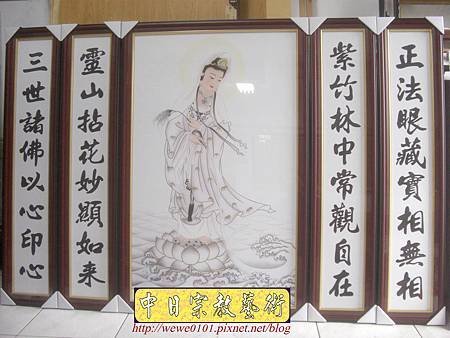 正法眼藏寶相無相
紫竹林中常觀自在
靈山拈花妙顯如来
三世諸佛以心印心
中日宗教藝術
http://wewe0101.pixnet.net/blog